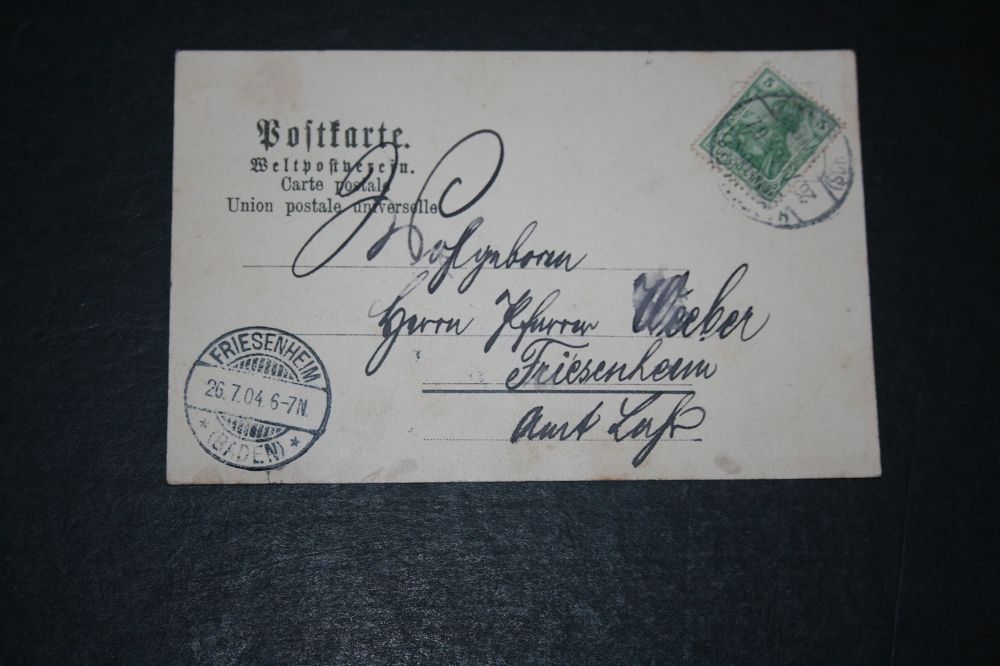 Postkarte.
Weltpostverein.
Carte postale
Union postale universelle
5 5
Wohlgeboren
Herrn Pfarrer Weeber
Friesenheim
Amt Lahr
FRIESENHEIM
26.7.04. 6-7N.
* (BADEN) *